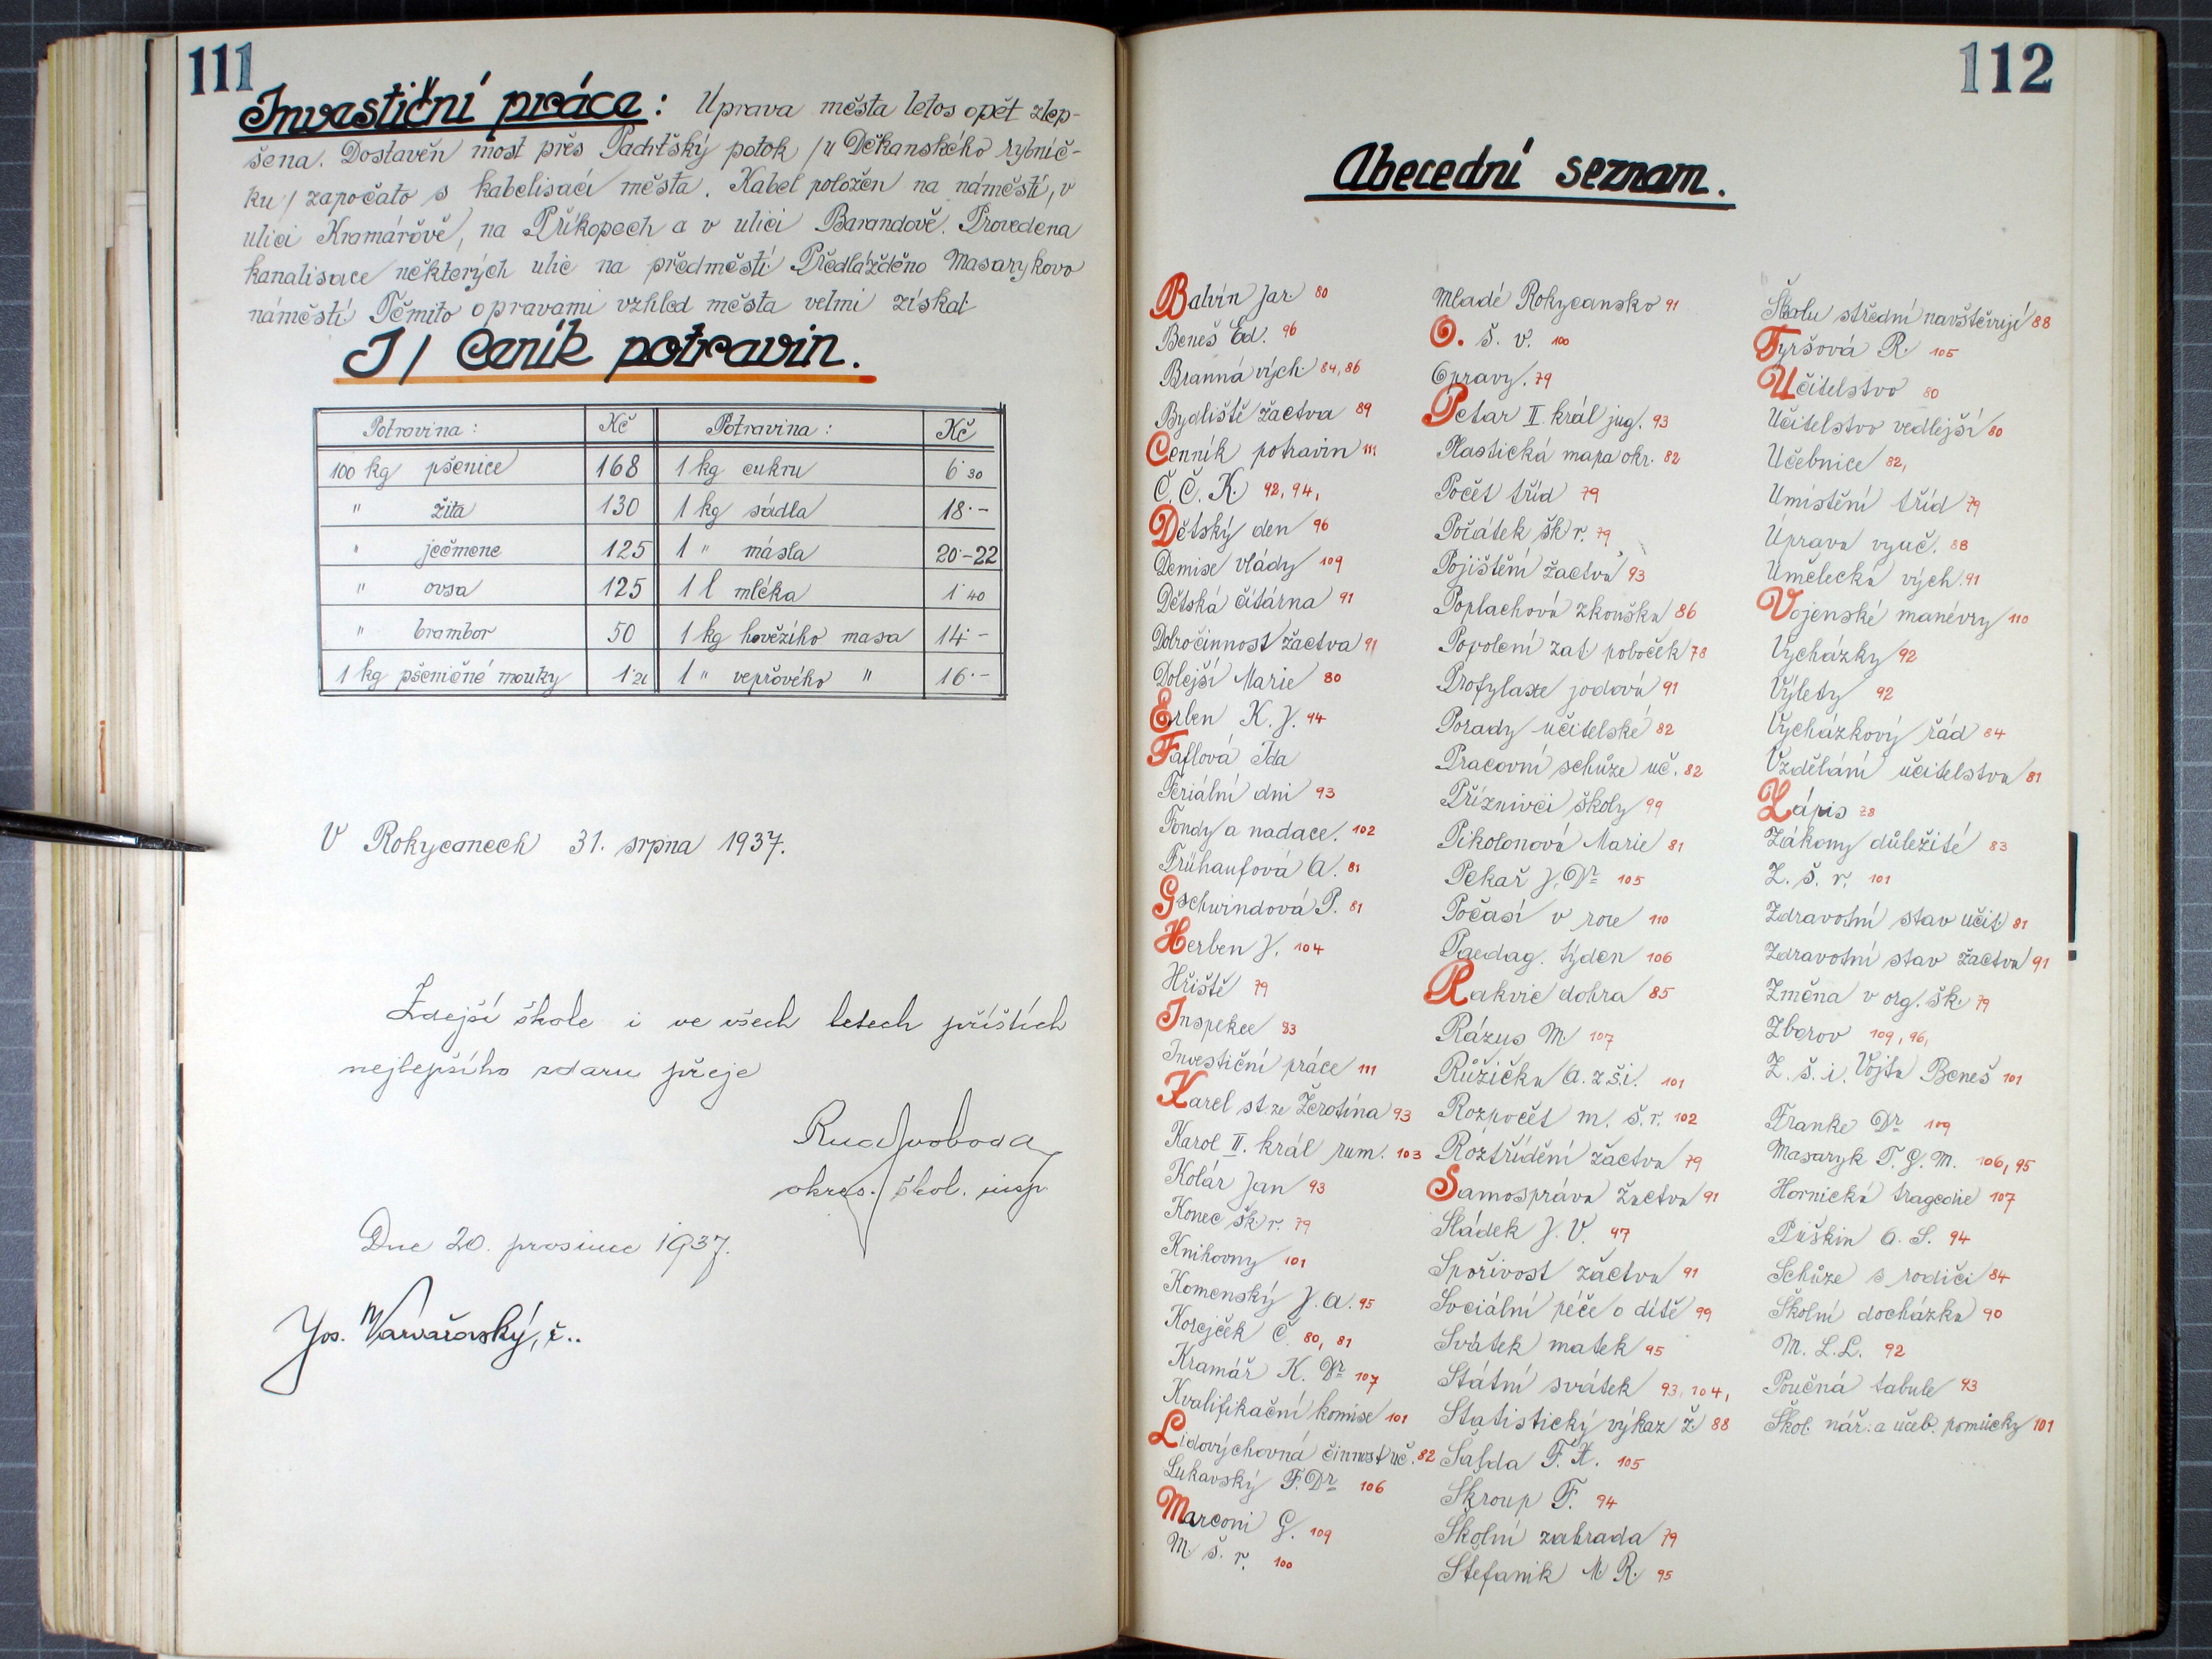 111
Investiční práce: Úprava města letos opět zlep-
šena. Dostavěn most přes Padrťský potok /u Děkanského rybníč-
ku/ započato s kabelisací města. Kabel položen na náměstí, v
ulici Kramářově, na Příkopech a v ulici Barandově. Provedena
kanalisace některých ulic na předměstí. Předlážděno Masarykovo
náměstí. Těmito opravami vzhled města velmi získal.
J/ Ceník potravin.
Potravina: Kč Potravina: Kč
100 kg pšenice 168 1 kg cukru 6·30
" žita 130 1 kg sádla 18·-
" ječmene 125 1 " másla 20·-22
" ovsa 125 1 l mléka 1·40
" brambor 50 1 kg hovězího masa 14·-
1 kg pšeničné mouky 1 " vepřového " 16·-
V Rokycanech 31. srpna 1937.
Zdejší škole i ve všech letech příštích
nejlepšího zdaru přeje
Rud Svoboda
okres. škol. insp.
Dne 20. prosince 1937.
Jos. Varvařovský, ř..
112
Abecední seznam.
Balvín Jar. 80
Beneš Ed. 96
Branná vých. 84, 86
Bydliště žactva 89
Cenník potravin 111
Č. Č. K. 92, 94,
Dětský den 96
Demise vlády 109
Dětská čítárna 91
Dobročinnost žactva 91
Dolejší Marie 80
Erben K. J. 94
Faflová Ida
Feriální dni 93
Fondy a nadace. 102
Frühaufová A. 81
Gschwindová P. 81
Herben J. 104
Hřiště 79
Inspekce 83
Investiční práce 111
Karel st. ze Žerotína 93
Karol II. král rum. 103
Kolár Jan 93
Konec šk. r. 79
Knihovny 101
Komenský J. A. 95
Korejček Č. 80, 81
Kramář K. Dr 107
Kvalifikační komise 101
Lidovýchovná činnost uč. 82
Lukavský F. Dr 106
Marconi G. 109
M. š. r. 100
Mladé Rokycansko 91
O. š. v. 100
Opravy. 79
Petar II. král jug. 93
Plastická mapa okr. 82
Počet tříd 79
Počátek šk. r. 79
Pojištění žactva 93
Poplachová zkouška 86
Povolení zat. poboček 78
Profylaxe jodová 91
Porady učitelské 82
Pracovní schůze uč. 82
Příznivci školy 99
Pikolonová Marie 81
Pekař J. Dr 105
Počasí v roce 110
Paedag. týden 106
Rakvic dobra 85
Rázus M. 107
Růžička A. z.š.i. 101
Rozpočet m. š. r. 102
Roztřídění žactva 79
Samospráva žactva 91
Sládek J. V. 97
Spořivost žactva 91
Sociální péče o dítě 99
Svátek matek 95
Státní svátek 93, 104,
Statistický výkaz ž. 88
Šalda F. X. 105
Škroup F. 94
Školní zahrada 79
Štefanik M. R. 95
Školu střední navštěvují 88
Tyršová R. 105
Učitelstvo 80
Učitelstvo vedlejší 80
Učebnice 82,
Umístění tříd 79
Úprava vyuč. 88
Umělecká vých. 91
Vojenské manévry 110
Vycházky 92
Výlety 92
Vycházkový řád 84
Vzdělání učitelstva 81
Zápis 78
Zákony důležité 83
Z. š. r. 101
Zdravotní stav učit. 81
Zdravotní stav žactva 91
Změna v org. šk. 79
Zborov 109, 96,
Z. š. i. Vojta Beneš 101
Franke Dr 109
Masaryk T. G. M. 106, 95
Hornická tragedie 107
Puškin A. S. 94
Schůze s rodiči 84
Školní docházka 90
M. L. L. 92
Poučná tabule 93
Škol. nář. a učeb. pomůcky 101